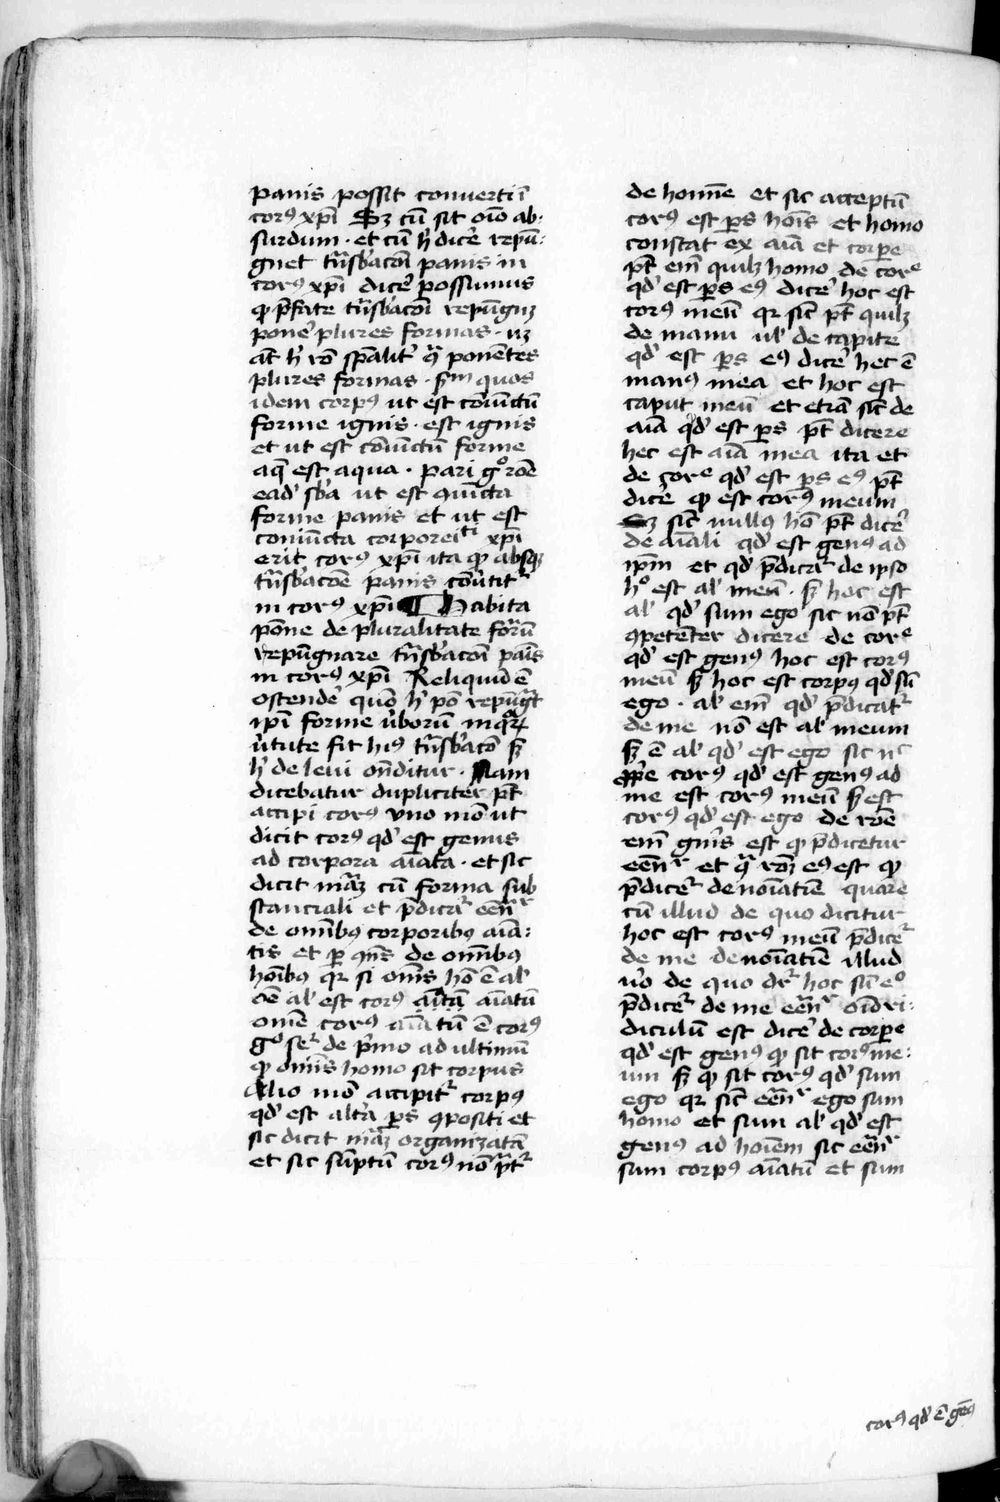 panis possit conuerti ī
corꝰ xp̄i Sꝫ cū sit oīo ab:
surdum · et cū h̓ dicē repū:
gnet trāsb̄acōi panis in
corꝰ xp̄i dicē possumus
ꝙ p̄fate trāsb̄acōi repūgnꝫ
ponē plures formas ·
at̄ h̓ rō sp̄alit̓ ꝯ̄ ponētes
plures formas · sm̄ quos
idem corpꝰ ut est cōiūctū
forme ignis · est ignis
et ut est cōiūctū forme
aq̄ est aqua · pari gͦ rōe
ead̓ sb̄a ut est ꝯiūcta
forme panis et ut est
coniūcta corporeiti xp̄i
erit corꝰ xp̄i ita ꝙ absqꝫ
trāsb̄acōe panis cōūtit̓
in corꝰ xp̄i ¶ Habita
pōne de pluralitate forū
repūgnare trāsb̄acōi pais
in corꝰ xp̄i Reliquid ē
ostendē quō h̓ pō repūgͣt
ip̄i forme ūborū in qͦꝝ
ūtute fit hiꝰ trāsb̄acō sꝫ
h̓ de leui onditur · Nam
dicebatur dupliciter pt̄
accipi corꝰ vno mō ut
dicit corꝰ qd̓ est genus
ad corpora aiata · et sic
dicit māꝫ cū forma sub
stanciali et p̄dicat̓ eēnr̄
de omībꝰ corporibꝰ aiā:
tis et ꝑ ꝯns̄ de omībꝰ
hoībꝰ qr̄ si omīs hō ē al̓
oē al̓ est corꝰ aiatū
omē corꝰ aiatū ē corꝰ
gͦ seq̓ de pͥmo ad ultimū
ꝙ omīs homo sit corpus
Alio mō accipit̓ corpꝰ
qd̓ est altā ꝑs ꝯpositi et
sic dicit māꝫ organizatā
et sic sūptū corꝰ nō p̄t̓
de homīe et sic acceptū
corꝰ est ꝑs hoīs et homo
constat ex aīa et corꝑe
pt̄ em̄ quilꝫ homo de corᵉ
qd̓ est ꝑs eꝰ dicē hoc est
corꝰ meū qr sic̄ pt̄ quilꝫ
de manu ul̓ de capite
qd̓ est ꝑs eꝰ dicē hec ē
manꝰ mea et hoc est
caput meū et etiā sic̄ de
aīa qd̓ est ꝑs pt̄ dicere
hec est aīa mea ita et
de corᵉ qd̓ est ꝑs eꝰ pt̄
dicē ꝙ est corꝰ meum
Sꝫ sic̄ nullꝰ hō pt̄ dicē
de aiāli qd̓ est genꝰ ad
ip̄m et qd̓ p̄dicat̓ de ipso
hͦ est al̓ meū · sꝫ hoc est
al̓ qd̓ sum ego sic nō pt̄
ꝯpetēter dicere de corᵉ
qd̓ est genꝰ hoc est corꝰ
meū sꝫ hoc est corpꝰ qd̓ sū
ego · al̓ em̄ qd̓ p̄dicat̓
de me nō est al̓ meum
sꝫ ē al̓ qd̓ est ego sic nᶜ
ꝓpe corꝰ qd̓ est genꝰ ad
me est corꝰ meū sꝫ est
corꝰ qd̓ est ego de rōe
em̄ gnis̄ est ꝙ p̄dicetur
eēnr̄ et ꝯ̄ rōꝫ eꝰ est ꝙ
p̄dicet̓ denoīatīe quare
cū illud de quo dicitur
hoc est corꝰ meū p̄dicet̓
de me denoīatīe illud
ūo de quo dr̄ hoc sū eͦ
p̄dicet̓ de me eēnr̄ oīo ri:
diculū est dicē de corꝑe
qd̓ est genꝰ ꝙ sit corꝰ me:
um sꝫ ꝙ sit corꝰ qd̓ sum
ego qr sic̄ eēnr̄ ego sum
homo et sum al̓ qd̓ est
genꝰ ad hoīem sic eēnr̄
sum corpꝰ aīatū et sum
corꝰ qd̓ ē genꝰ